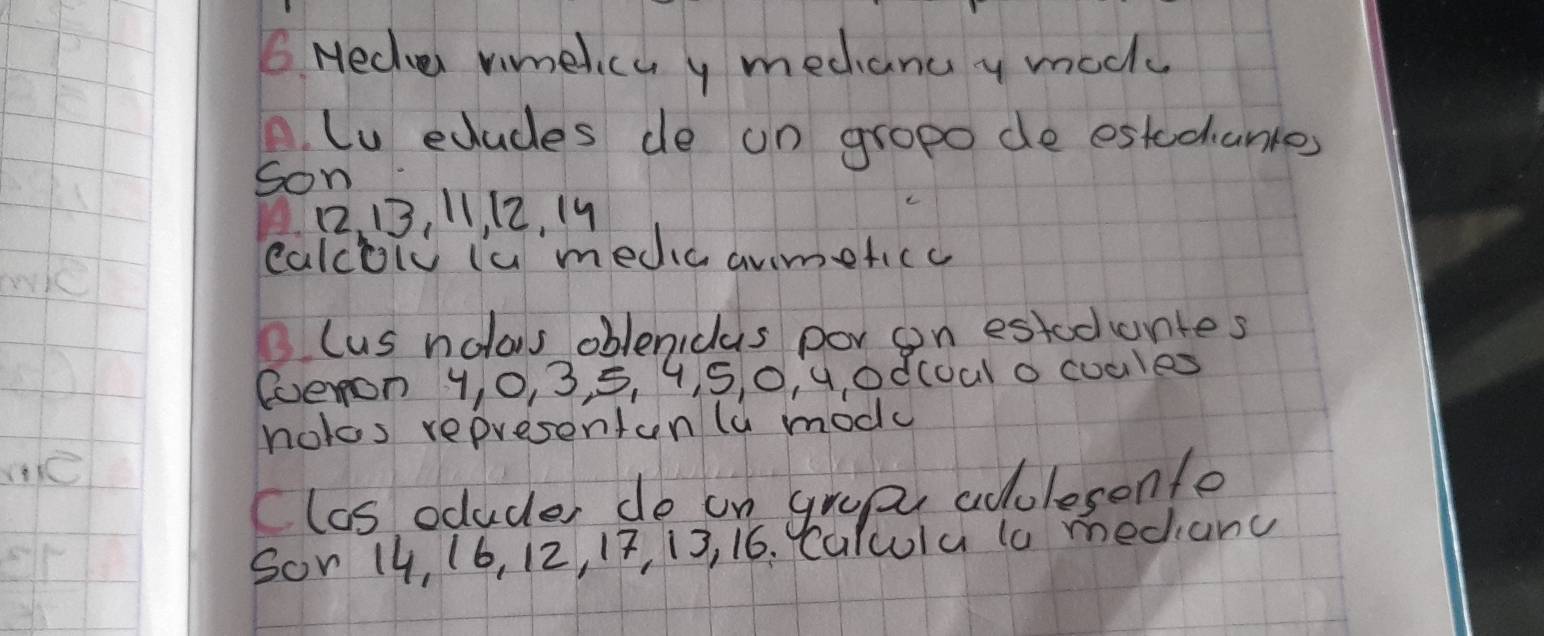 6. Media rimelica y mediana y moda
A. La edades de un gropo de estudiantes
son
A. 12, 13, 11, 12, 14
calcola la media arimetica
B. Las notas oblenidas por un estodiantes
foeron 4, 0, 3, 5, 4, 5, 0, 4, 0 d cual o cuales
notas representan la moda
C Las edades de un grupa adolesente
son 14, 16, 12, 17, 13, 16. Calcula la mediana